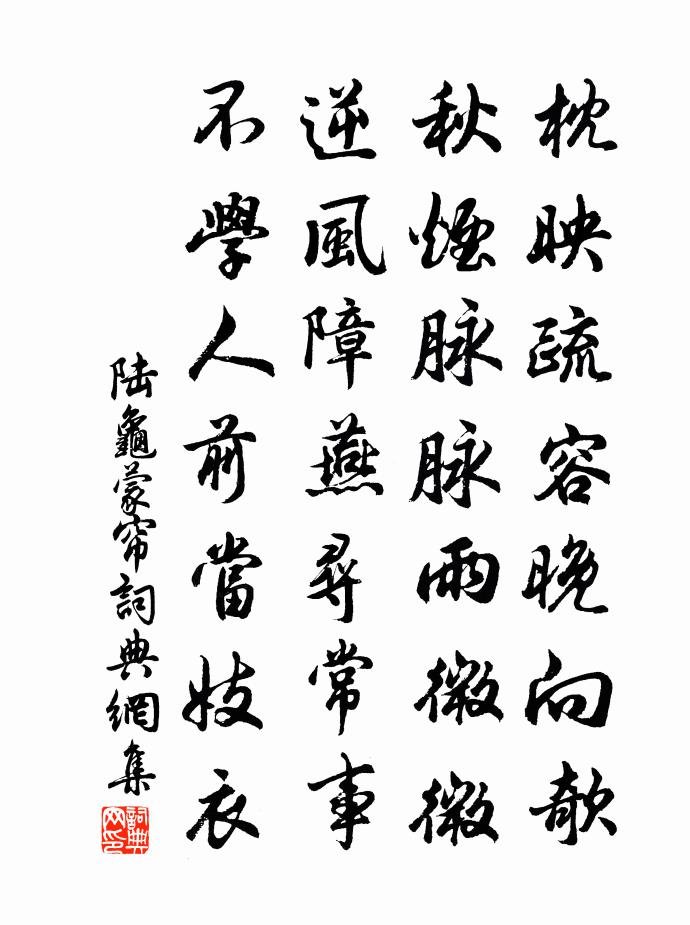 枕映疏容晚向欹
秋煙脉脉雨微微
逆風障燕尋常事
不學人前當妓衣
陸龜蒙帘詞典網集
詞典网印